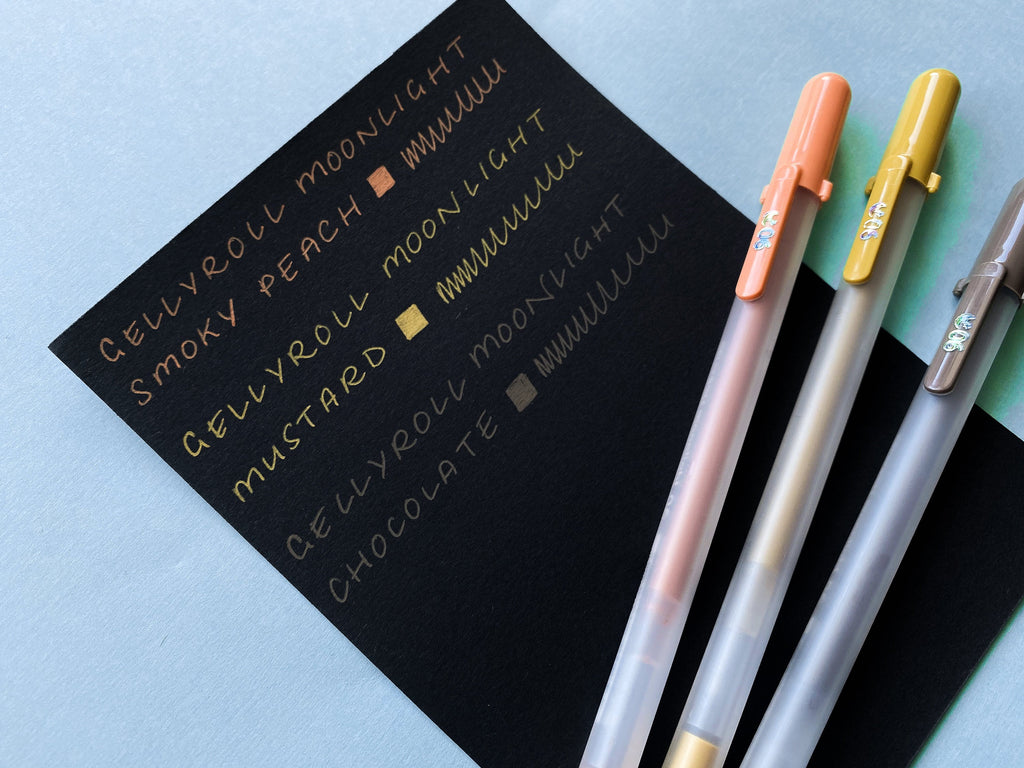 GELLYROLL MOONLIGHT
SMOKY PEACH
GELLYROLL MOONLIGHT
MUSTARD
GELLYROLL MOONLIGHT
CHOCOLATE